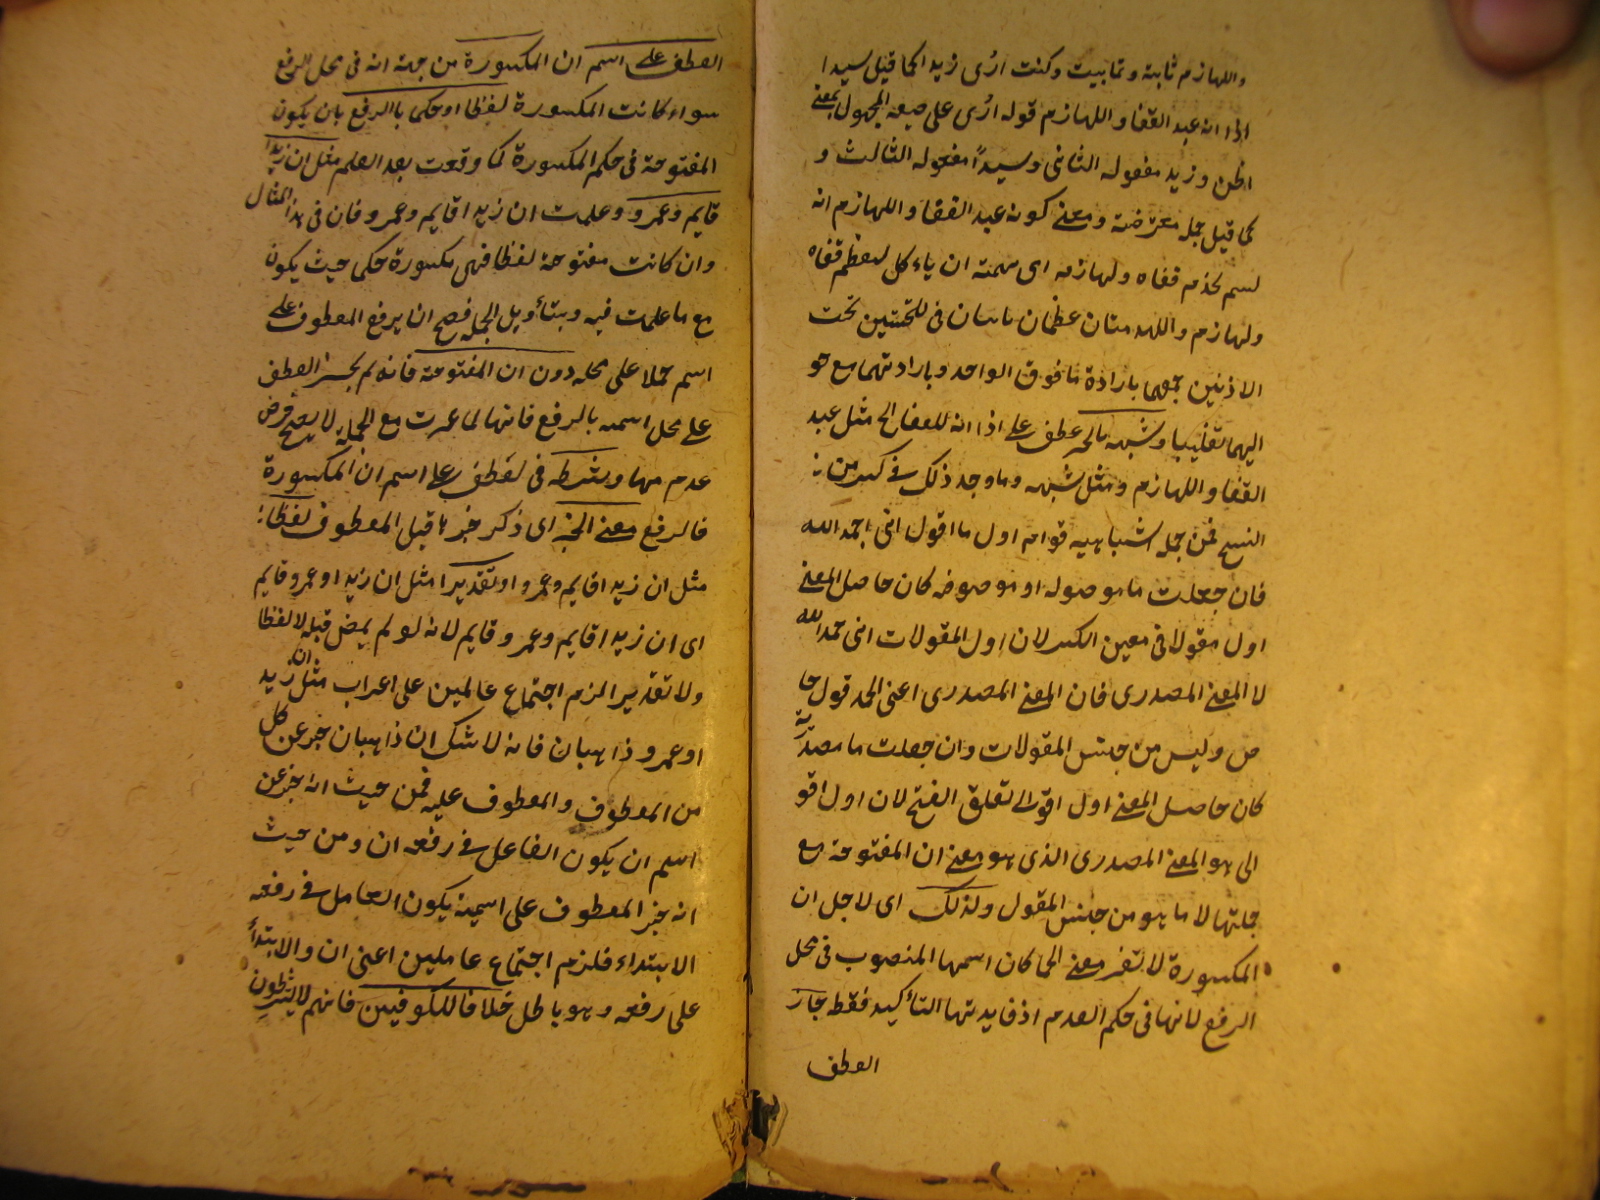 واللهازم ثابتة وثابيت وكنت ارُى زيدا كما قيل سيدا
اذا انه عبد القفا واللهازم قوله ارُى على صيغه المجهول بمعنى
اظن وزيد مفعوله الثانى وسيداً مفعوله الثالث و
كما قيل جملة معترضة ومعنى كونه عبد القفا واللهازم انه
قفاه ولهازمه اى همته ان ياءكل ليعظم قفاه
ولهازم عظمان ناتيان فى اللحيتين تحت
الاذنين جمعهما بارادة ما فوق الواحد وبارادتهما مع حو
اليهما تغليبا وشبهه بالجر عطف على اذا انه للعفا الخ مثل عبد
القفا واللهازم ومثل شبهه وما وجد ذلك فى كثير من
النسخ فمن جملة اشباهيه قولهم اول ما اقول انى احمد الله
فان جعلت ما موصوله او موصوفه كان حاصل المعنى
اول مقولاتى لان اول المقولات انى احمد الله
لا المعنى المصدرى فان المعنى المصدرى اعنى الحمد قول خا
ص وليس من جنس المقولات وان جعلت ما مصدرية
كان حاصل المعنى اول اقوالى تعلق الفتح لان اول اقو
الى هو المعنى المصدرى الذى هو معنى ان المفتوحة مع
جملتها لا ما يهو من جنس المقول ولذلك اى لاجل ان
المكسورة لا تغير معنى الجملة كان اسمها المنصوب فى محل
الرفع لانها فى حكم العدم اذ فايدتها التأكيد فقط جاز
العطف
العطف على اسم ان المكسورة من جهة انه فى محل الرفع
سواء كانت المكسورة لفظا او حكما بالرفع بان يكون
المفتوحة فى حكم المكسورة كما وقعت بعد العلم مثل ان زيدا
قايم وعمرو وعلمت ان زيدا قايم وعمرو فان فى هذا المثال
وان كانت مفتوحة لفظا فهى مكسورة حكما حيث يكون
مع ما عملت فيه وبتأويل الجملة فصح ان يرفع المعطوف على
اسم حملا على محله دون ان المفتوحة فانه لم يجز العطف
على محل اسمه بالرفع فانها لما غيرت مع الجملة لا يصح فرض
عدمها ويشترط فى العطف على اسم ان المكسورة
فالرفع معنى الخبر اى ذكر خبرها قبل المعطوف لفظا
مثل ان زيدا قايم وعمرو او تقديرا مثل ان زيدا وعمرو قايم
اى ان زيدا قايم وعمرو قايم لانه لو لم يمض قبله لا لفظا
ولا تقديرا لزم اجتماع عاملين على اعراب مثل ان زيد
او عمرو ذاهبان فانه لا شك ان ذاهبان خبر عن كل
من المعطوف والمعطوف عليه فمن حيث انه خبر عن
اسم ان يكون العامل فى رفعه ان ومن حيث
انه خبر المعطوف على اسمية يكون العامل فى رفعه
الابتداء فلزم اجتماع عاملين اعنى ان والابتدأ
على رفعه وهو باطل خلافا للكوفيين فانهم لا يشترطون